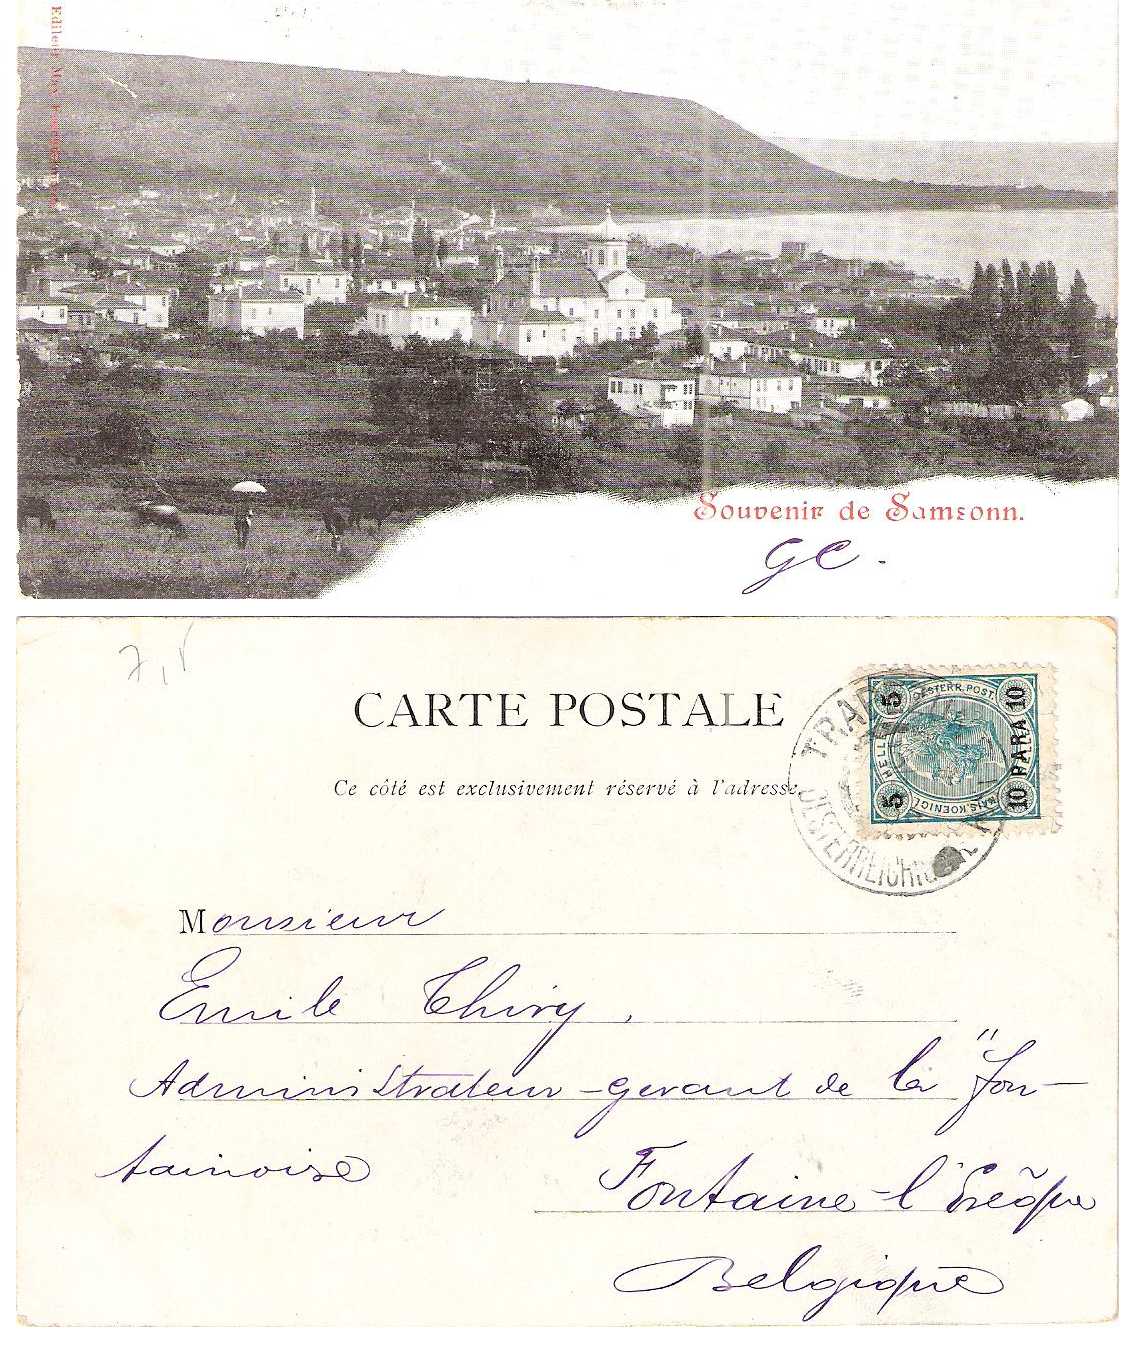 Editeur Max
Souvenir de Samsonn.
GC.
7,5
CARTE POSTALE
Ce côté est exclusivement réservé à l'adresse.
TRAP
OESTERREICHI
OESTERR. POST.
KAIS. KOENIGL
5
5
HELL
10 PARA 10
Monsieur
Emile Thiry,
Administrateur-gerant de la "Fon-
tainoise
Fontaine-l'Evêque
Belgique